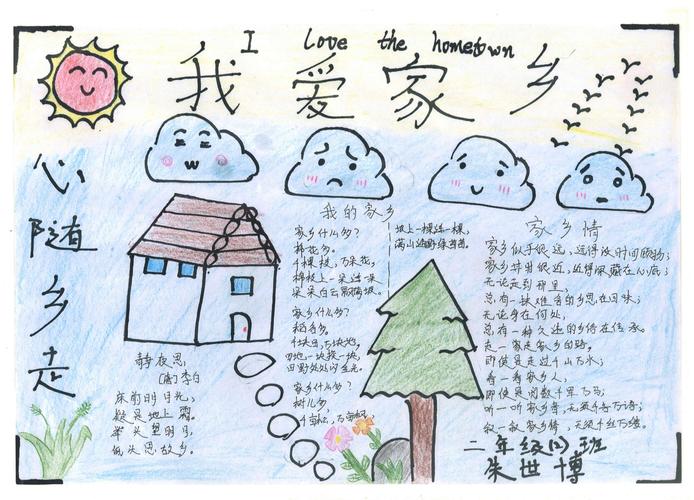 I love the hometown
我爱家乡
心随乡走
我的家乡
家乡什么多?
棉花多。
千棵枝,万朵花,
棉枝上一朵连一朵
朵朵白云飘满坡。
家乡什么多?
稻香多。
一块块
田野处处闪金光。
家乡什么多?
树儿多
千亩松,万亩杨,
坡上一棵连一棵,
满山遍野绿莽莽。
家乡情
家乡似乎很远,远得没时间顾物;
家乡其实很近,近得深藏在心底;
无论走到那里,
总有一缕难舍的乡思在回味;
无论身在何处,
总有一种久违的乡情在传承。
走一走家乡的路,
即使是走过千山万水;
看一看家乡人,
即使是阅数千军万马;
听一听家乡音,无须千言万语;
叙一叙家乡情,无须千丝万缕。
静夜思
[唐]李白
床前明月光,
疑是地上霜。
举头望明月,
低头思故乡。
二年级(2)班
朱世博